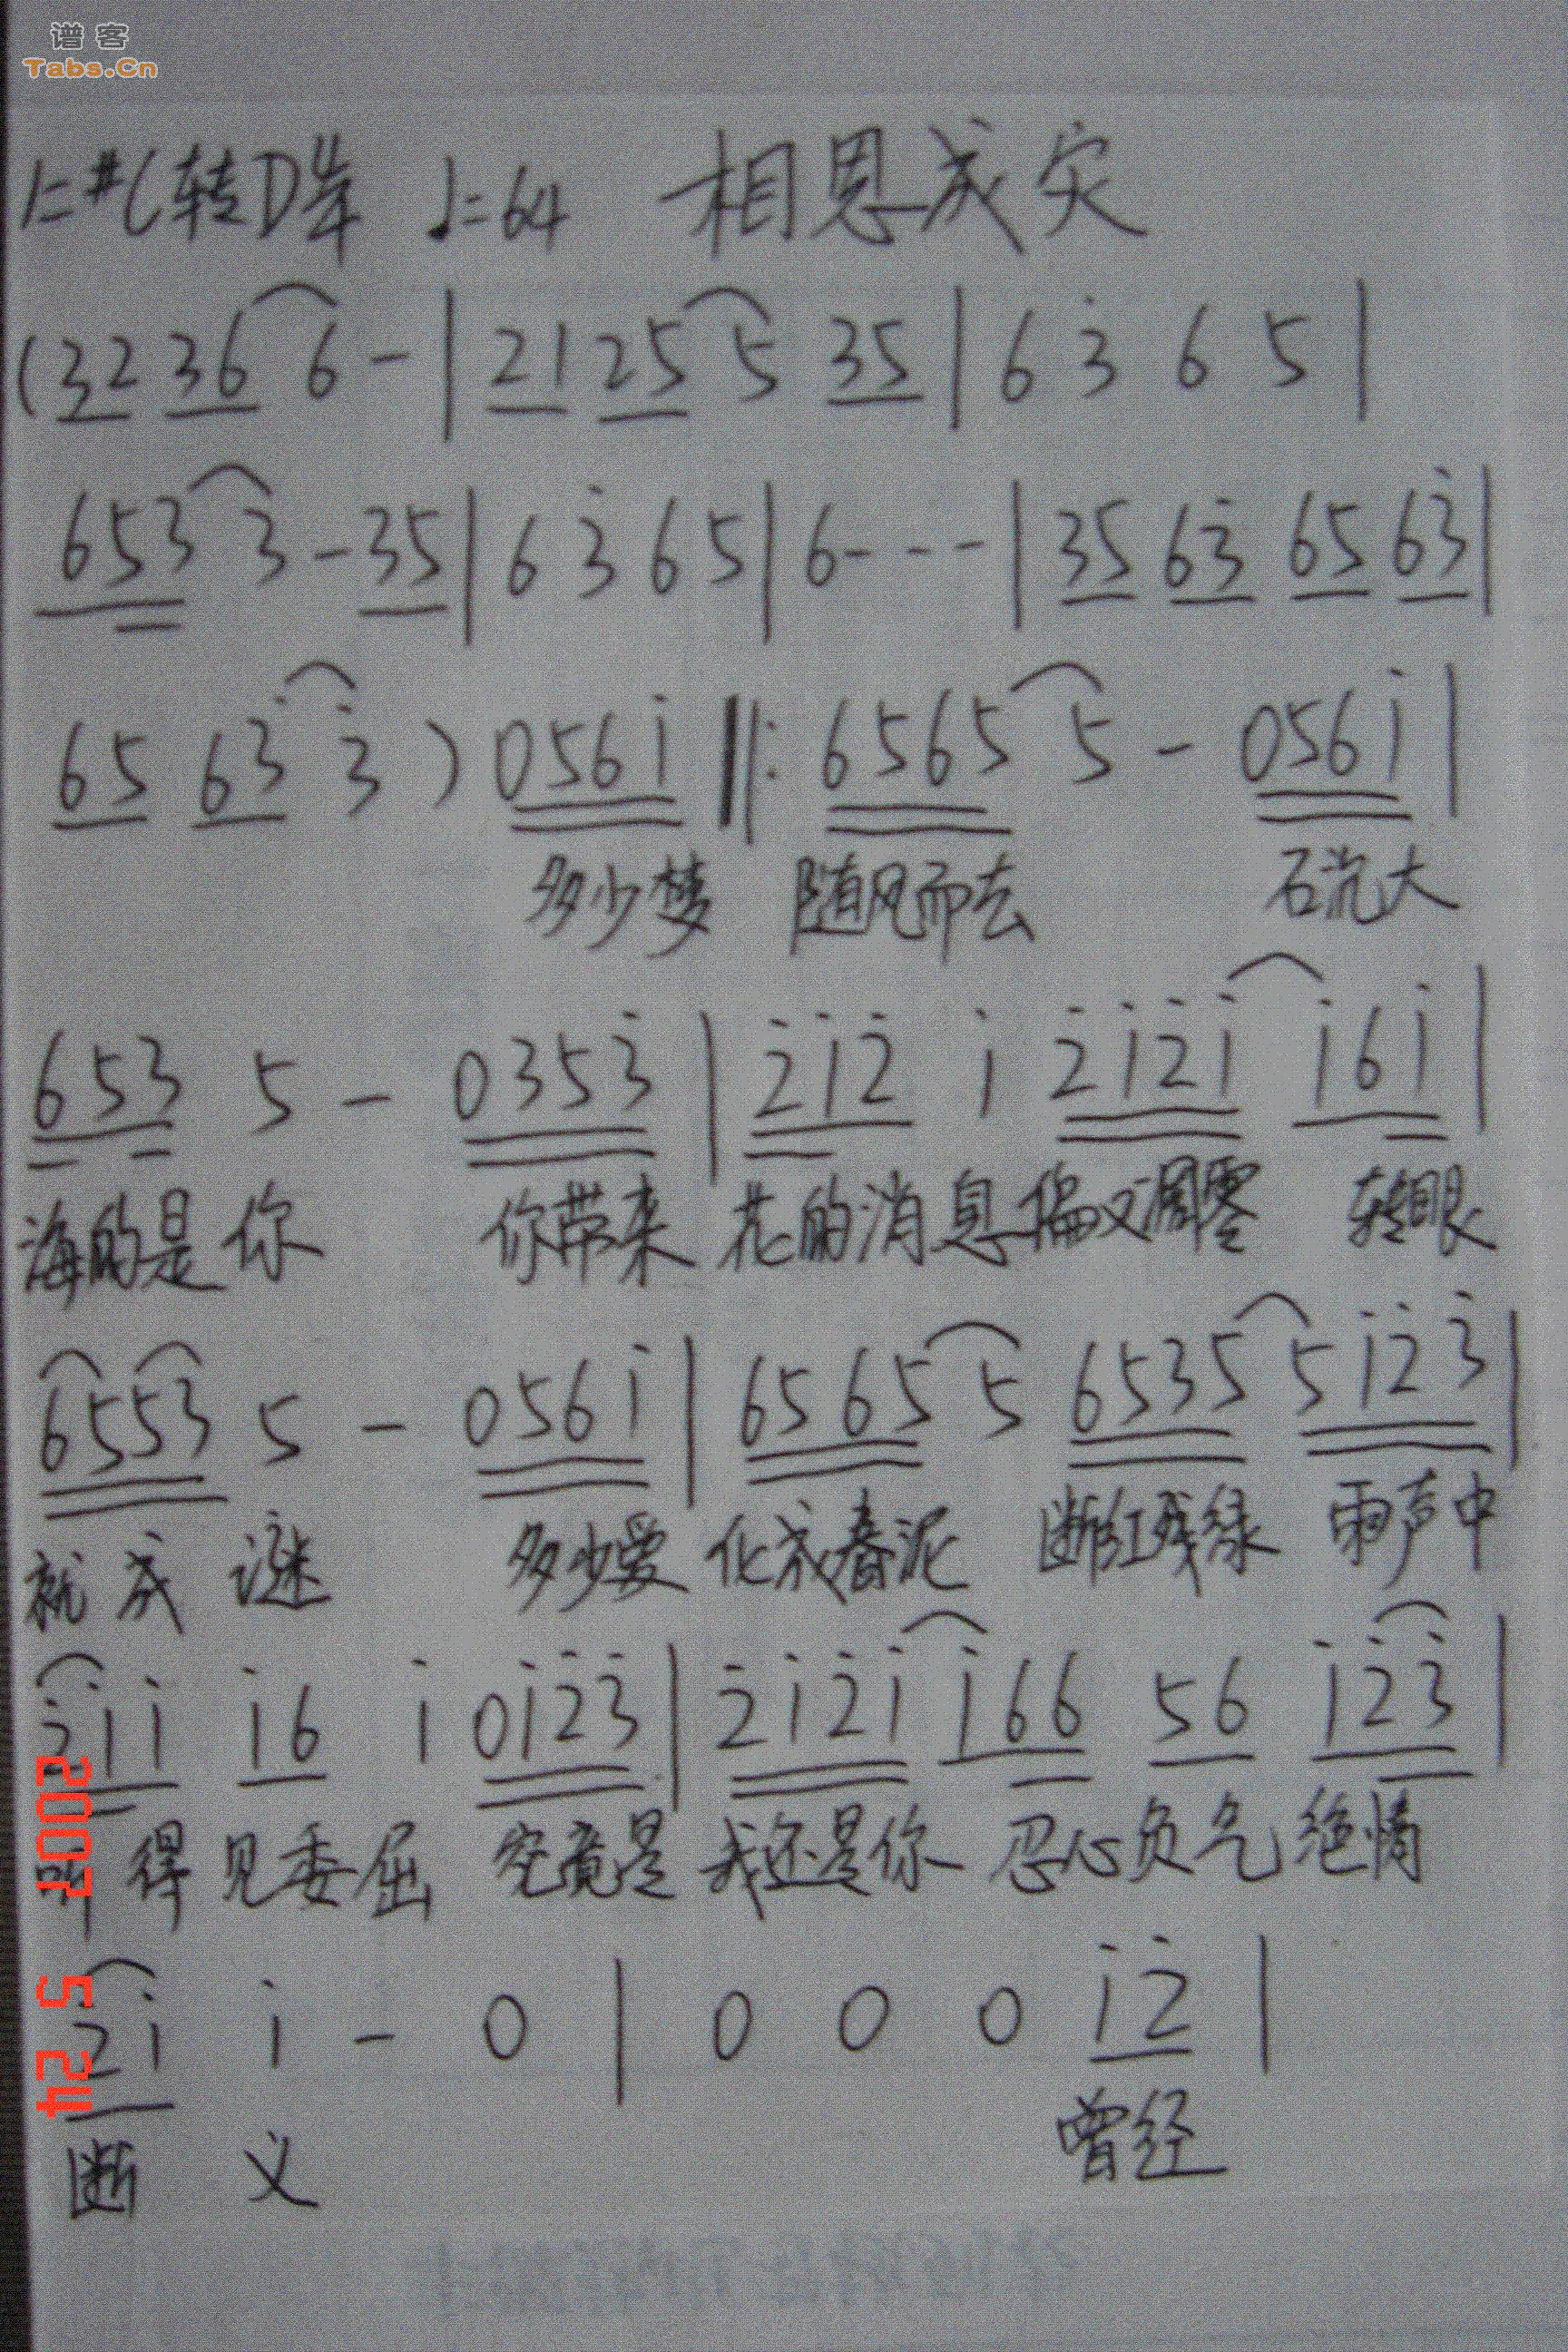 谱客
Tabs.Cn
1=#C转D 4/4 ♩=64 相思成灾
(32 36 6 - | 21 25 5 35 | 6 3̇ 6 5 |
653 3 - 35 | 6 3̇ 6 5 | 6 - - - | 35 63̇ 65 63̇ |
65 63̇ 3̇ ) 0561̇ ‖: 6565 5 - 0561̇ |
多少梦 随风而去 石沉大
653 5 - 0353̇ | 2̇1̇2̇ 1̇ 2̇1̇2̇1̇ 1̇61̇ |
海的是你 你带来 花的消息偏又凋零 转眼
6553 5 - 0561̇ | 6565 5 6535 51̇2̇3̇ |
就成谜 多少爱 化成春泥 断红残绿 雨声中
2̇1̇1̇ 1̇6 1̇ 01̇2̇3̇ | 2̇1̇2̇1̇ 1̇66 56 1̇2̇3̇ |
听得见委屈 究竟是 我还是你 忍心负气 绝情
2̇1̇ 1̇ - 0 | 0 0 0 1̇2̇ |
断义 曾经
2007 5 24